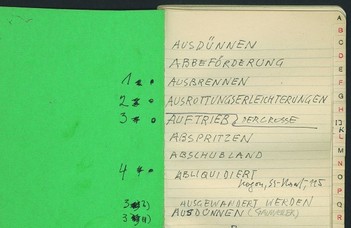 AUSDÜNNEN
ABBEFÖRDERUNG
1 AUSBRENNEN
2 AUSROTTUNGSERLEICHTERUNGEN
3 AUFTRIEB
ABSPRITZEN
ABSCHUBLAND
4 ABLIQUIDIERT
Kogon, SS-Staat,
AUSGEWANDERT WERDEN
AUSDÜNNEN
A
B
C
D
E
F
G
H
L
M
N
O
P
Q
R